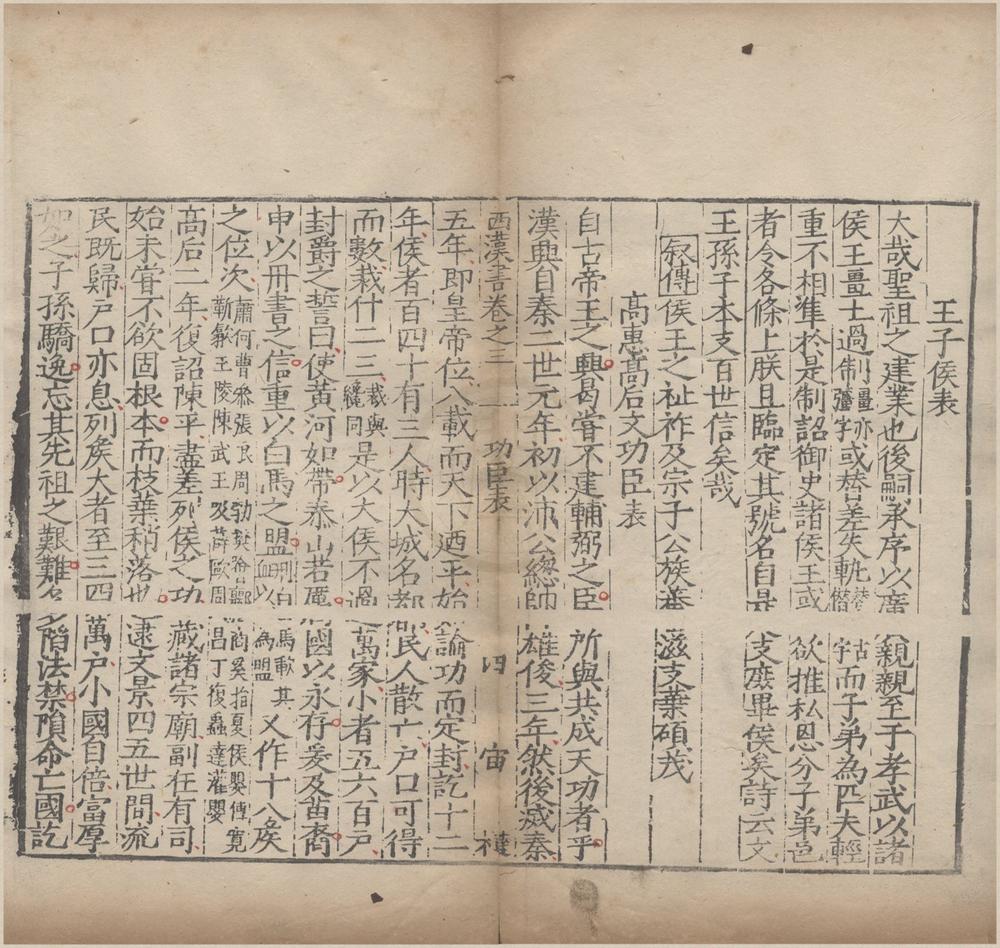 王子侯表
大哉聖祖之建業也後嗣承序以廣親親至于孝武以諸
侯王畺土過制畺亦疆字或替差失軌替古僭字而子弟為匹夫輕
重不相準於是制詔御史諸侯王或欲推私恩分子弟邑
者令各條上朕且臨定其號名自是支庶畢侯矣詩云文
王孫子本支百世信矣哉
叙傳侯王之祉祚及宗子公族蕃滋支葉碩茂
高惠高后文功臣表
自古帝王之興曷嘗不建輔弼之臣所與共成天功者乎
漢興自秦二世元年初以沛公總帥雄俊三年然後滅秦
西漢書卷之三 功臣表 四 宙
五年即皇帝位八載而天下迺平始論功而定封訖十二
年侯者百四十有三人時大城名都民人散亡戶口可得
而數裁什二三裁與纔同是以大侯不過萬家小者五六百戶
封爵之誓曰使黃河如帶泰山若厲國以永存爰及苗裔
申以冊書之信重以白馬之盟刑白馬歃其血以為盟又作十八侯
之位次蕭何曹參張良周勃樊噲酈商奚指夏侯嬰傅寬靳歙王陵陳武王吸薛歐周昌丁復蟲達灌嬰
高后二年復詔陳平盡差列侯之功藏諸宗廟副在有司
始未嘗不欲固根本而枝葉稍落也逮文景四五世間流
民既歸戶口亦息列侯大者至三四萬戶小國自倍富厚
如之子孫驕逸忘其先祖之艱難多陷法禁隕命亡國訖